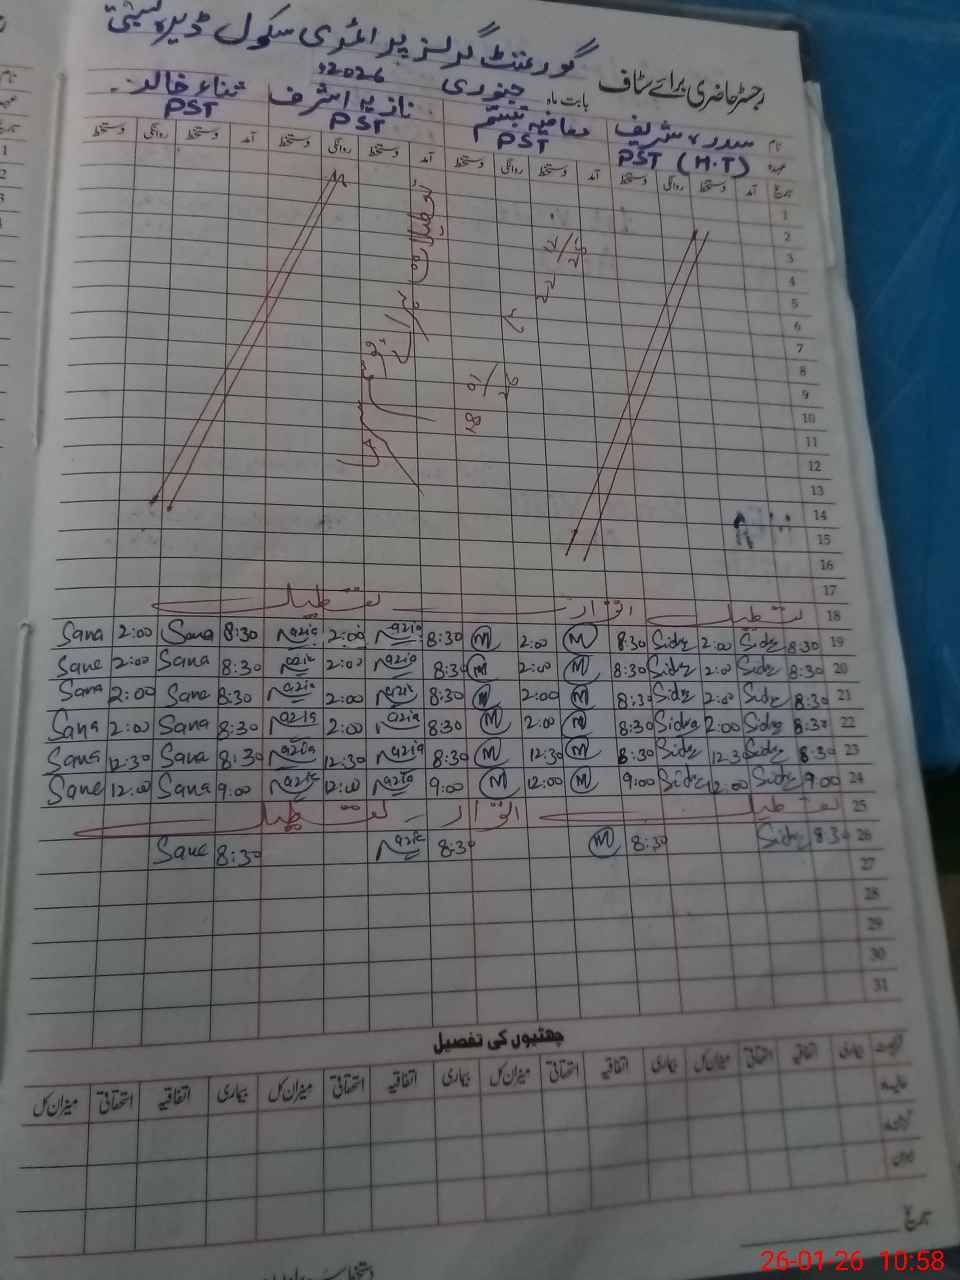 گورنمنٹ گرلز پرائمری سکول ڈیرہ
رجسٹر حاضری برائے سٹاف
بابت ماہ جنوری 2026ء
نام سدرہ شریف
نازیہ اشرف ثناء خالد
عہدہ PST (H.T) PST PST PST
تاریخ آمد دستخط روانگی دستخط آمد دستخط روانگی دستخط آمد دستخط روانگی دستخط آمد دستخط روانگی دستخط
1
2
3
4
5
6
7
8
9
10
11
12
13
14
15
16
17
18 تعطیل اتوار تعطیل
19 8:30 Sidra 2:00 Sidra 8:30 M 2:00 M 8:30 Nazia 2:00 Nazia 8:30 Sana 2:00 Sana
20 8:30 Sidra 2:00 Sidra 8:30 M 2:00 M 8:30 Nazia 2:00 Nazia 8:30 Sana 2:00 Sana
21 8:30 Sidra 2:00 Sidra 8:30 M 2:00 M 8:30 Nazia 2:00 Nazia 8:30 Sana 2:00 Sana
22 8:30 Sidra 2:00 Sidra 8:30 M 2:00 M 8:30 Nazia 2:00 Nazia 8:30 Sana 2:00 Sana
23 8:30 Sidra 12:30 Sidra 8:30 M 12:30 M 8:30 Nazia 12:30 Nazia 8:30 Sana 12:30 Sana
24 9:00 Sidra 12:00 Sidra 9:00 M 12:00 M 9:00 Nazia 12:00 Nazia 9:00 Sana 12:00 Sana
25 تعطیل اتوار تعطیل
26 8:30 Sidra 8:30 M 8:30 Nazia 8:30 Sana
27
28
29
30
31
چھٹیوں کی تفصیل
بیماری اتفاقیہ استحقاقی میزان کل بیماری اتفاقیہ استحقاقی میزان کل بیماری اتفاقیہ استحقاقی میزان کل بیماری اتفاقیہ استحقاقی میزان کل
تاریخ
26-01-26 10:58